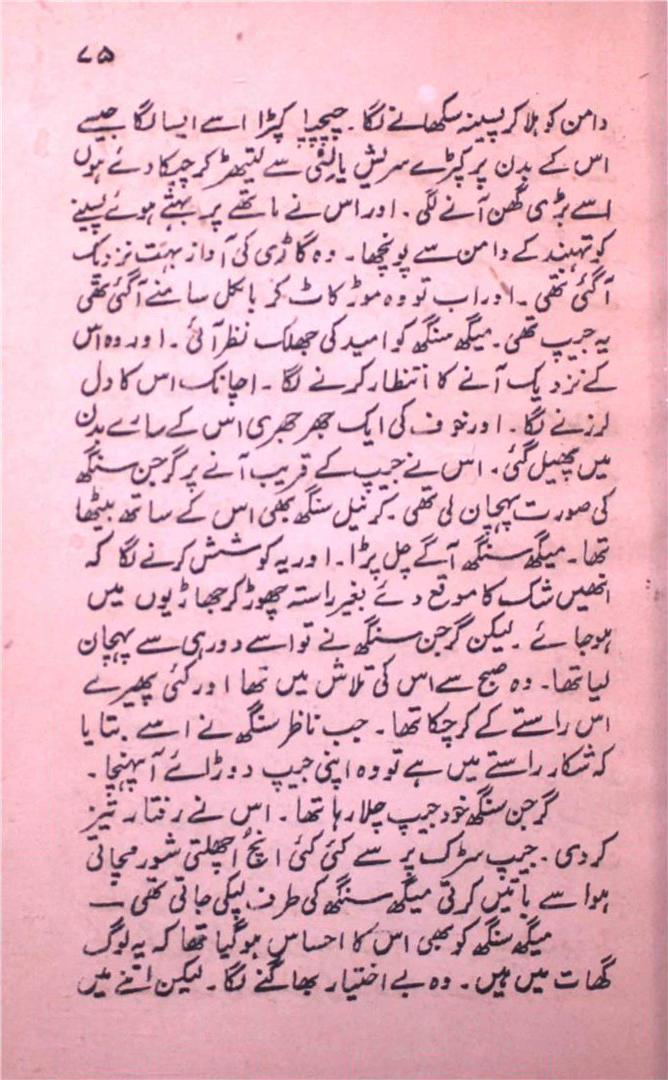 ۷۵
دامن کو ہلا کر پسینہ سکھانے لگا۔ چپچپا کپڑا اسے ایسا لگا جیسے
اس کے بدن پر کپڑے سریش یا لئی سے لتیھڑ کر چپکا دئے ہوں
اسے بڑی گھن آنے لگی۔ اور اس نے ماتھے پر بہتے ہوئے پسینے
کو تہبند کے دامن سے پونچھا۔ وہ گاڑی کی آواز بہت نزدیک
آگئی تھی۔ اور اب تو وہ موڑ کاٹ کر بالکل سامنے آگئی تھی
یہ جیپ تھی۔ میگھ سنگھ کو امید کی جھلک نظر آئی۔ اور وہ اس
کے نزدیک آنے کا انتظار کرنے لگا۔ اچانک اس کا دل
لرزنے لگا۔ اور خوف کی ایک جھرجھری اس کے سارے بدن
میں پھیل گئی۔ اس نے جیپ کے قریب آنے پر گرجن سنگھ
کی صورت پہچان لی تھی۔ کرنیل سنگھ بھی اس کے ساتھ بیٹھا
تھا۔ میگھ سنگھ آگے چل پڑا۔ اور یہ کوشش کرنے لگا کہ
انھیں شک کا موقع دئے بغیر راستہ چھوڑ کر جھاڑیوں میں
ہوجائے۔ لیکن گرجن سنگھ نے تو اسے دور ہی سے پہچان
لیا تھا۔ وہ صبح سے اس کی تلاش میں تھا اور کئی پھیرے
اس راستے کے کرچکا تھا۔ جب ناظر سنگھ نے اسے بتایا
کہ شکار راستے میں ہے تو وہ اپنی جیپ دوڑائے آ پہنچا۔
گرجن سنگھ خود جیپ چلا رہا تھا۔ اس نے رفتار تیز
کردی۔ جیپ سڑک پر سے کئی کئی انچ اچھلتی شور مچاتی
ہوا سے باتیں کرتی میگھ سنگھ کی طرف لپکی جاتی تھی —
میگھ سنگھ کو بھی اس کا احساس ہوگیا تھا کہ یہ لوگ
گھات میں ہیں۔ وہ بے اختیار بھاگنے لگا۔ لیکن اتنے میں